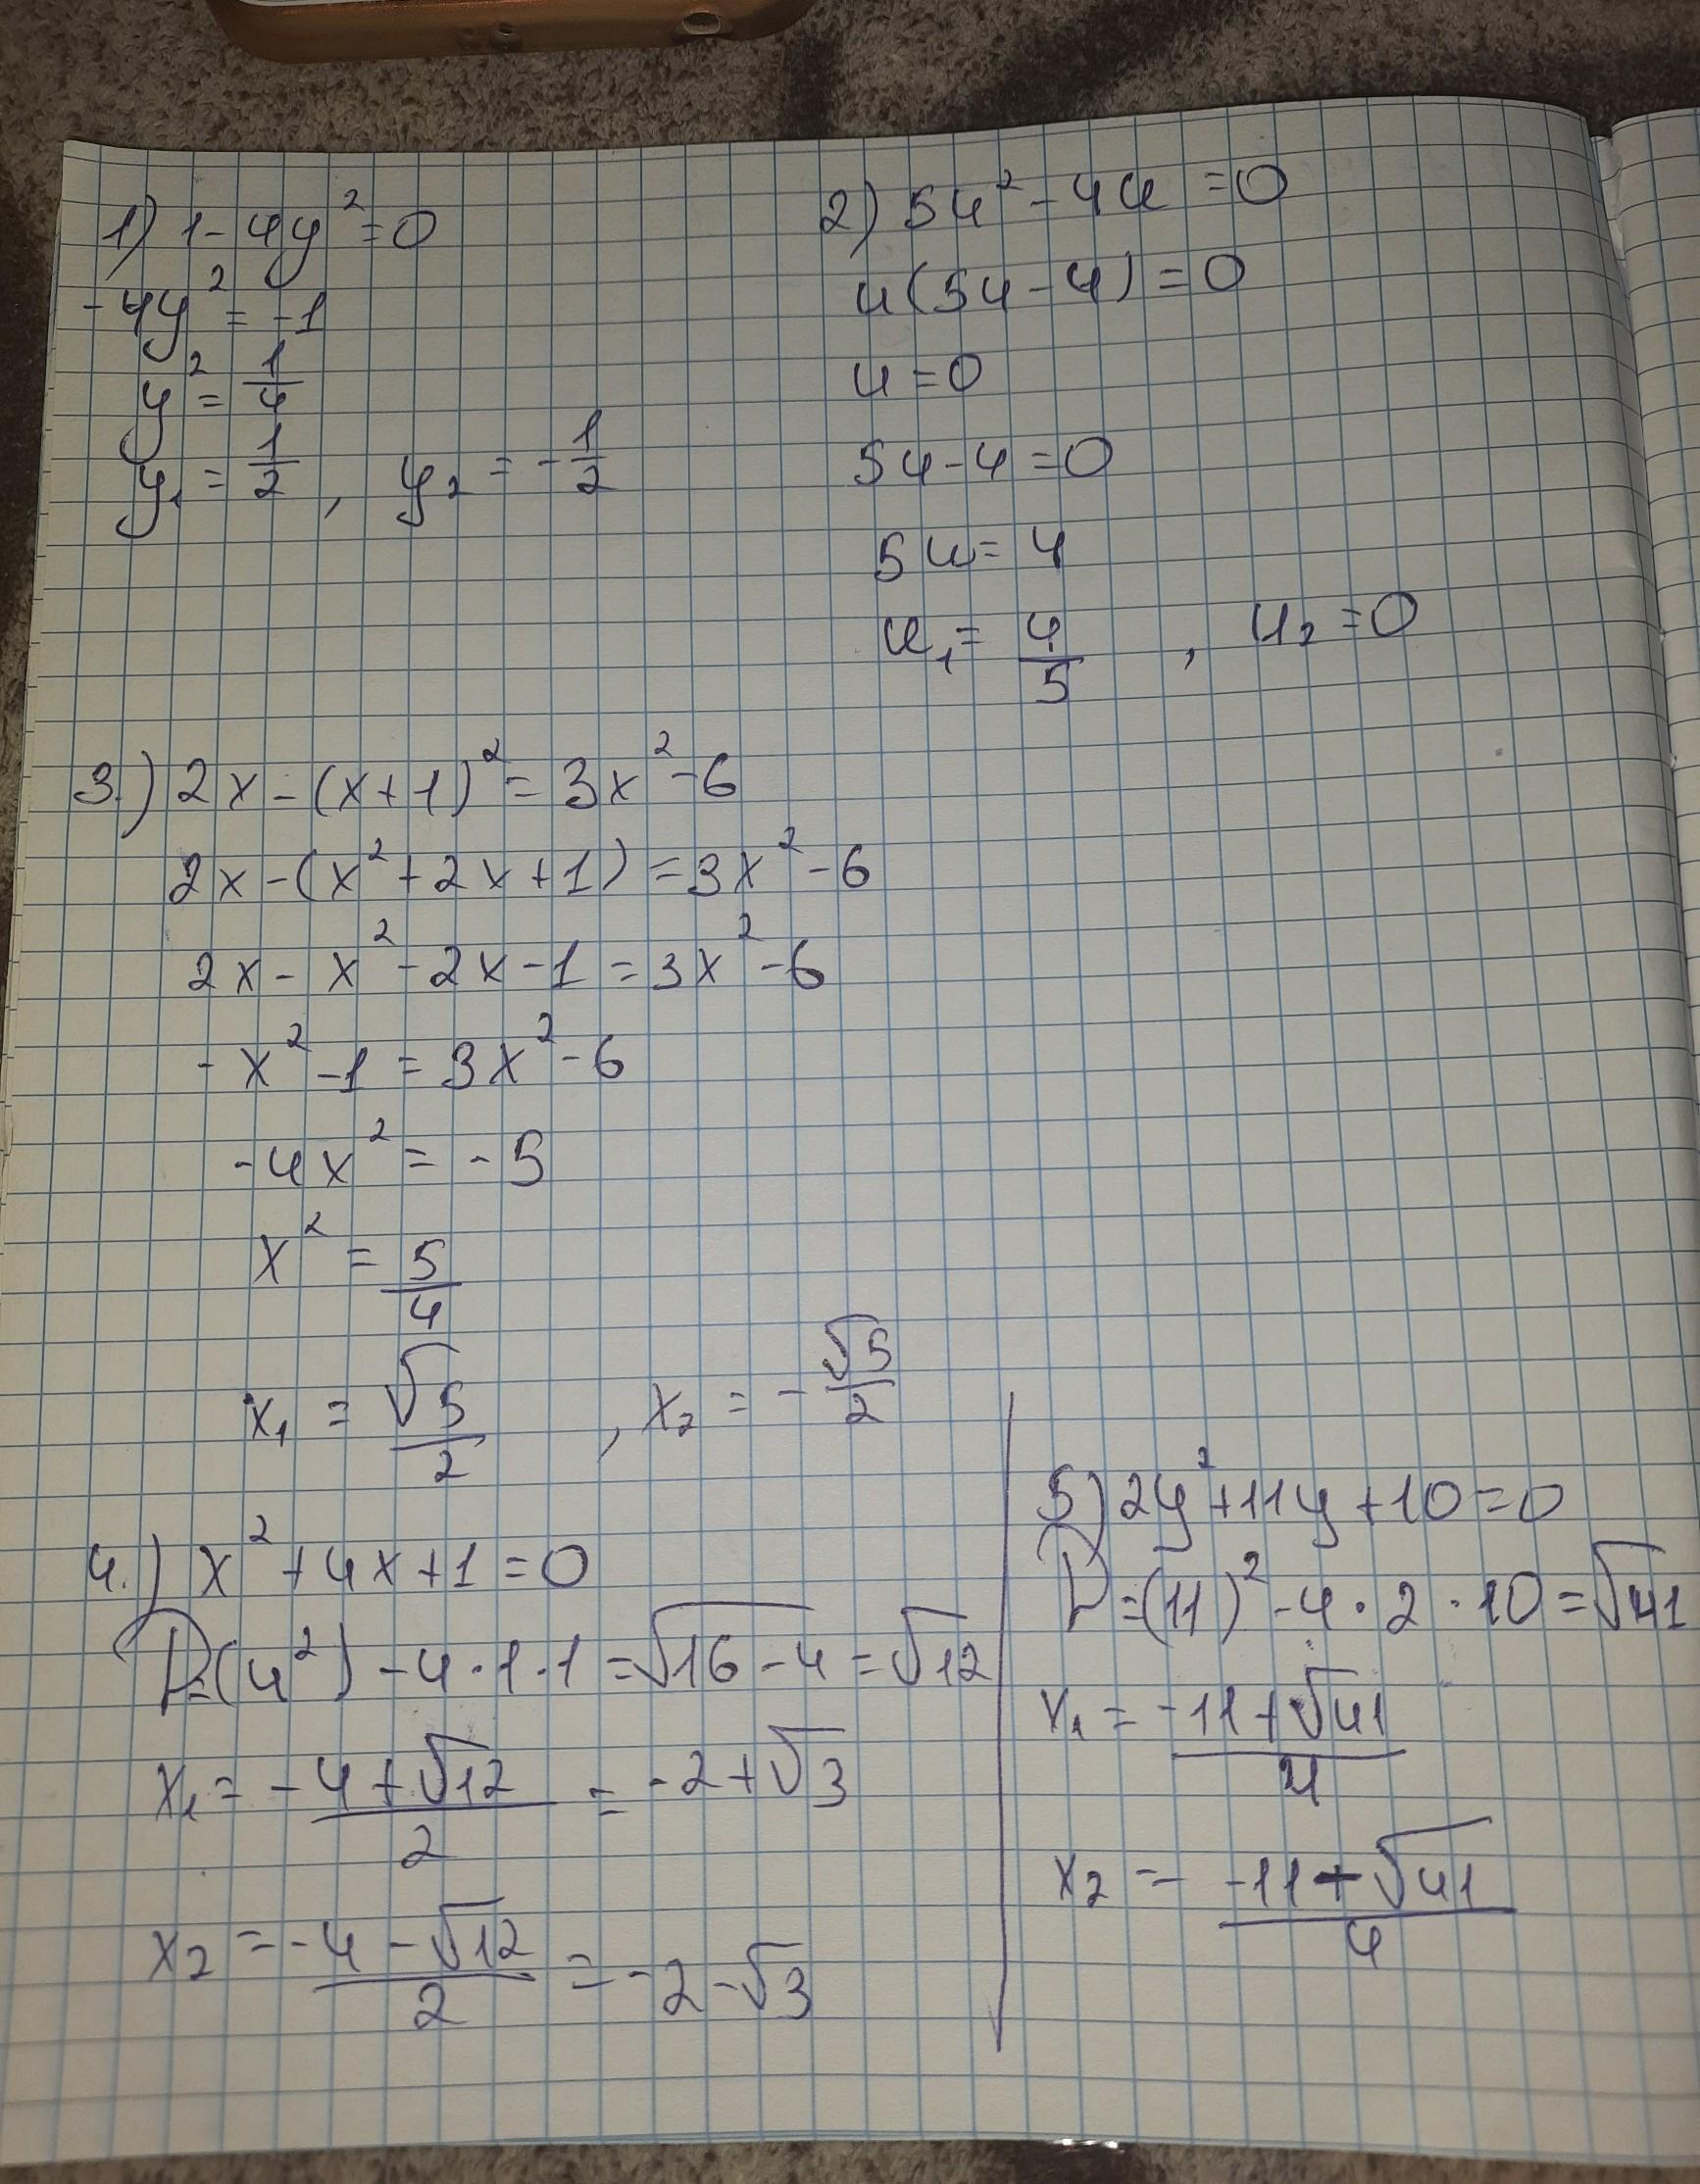 1) 1-4y²=0
-4y²=-1
y²=1/4
y₁=1/2, y₂=-1/2
2) 5u²-4u=0
u(5u-4)=0
u=0
5u-4=0
5u=4
u₁=4/5, u₂=0
3.) 2x-(x+1)²=3x²-6
2x-(x²+2x+1)=3x²-6
2x-x²-2x-1=3x²-6
-x²-1=3x²-6
-4x²=-5
x²=5/4
x₁=√5/2, x₂=-√5/2
4.) x²+4x+1=0
D=(4²)-4·1·1=√16-4=√12
x₁=-4+√12/2=-2+√3
x₂=-4-√12/2=-2-√3
5) 2y²+11y+10=0
D=(11)²-4·2·10=√41
x₁=-11+√41/4
x₂=-11-√41/4